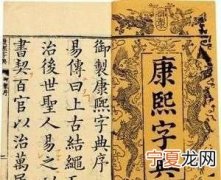 御製康熙字典序
易傳曰上古結繩
治後世聖人易之
書契百官以治萬
康熙字典
宁夏龙网